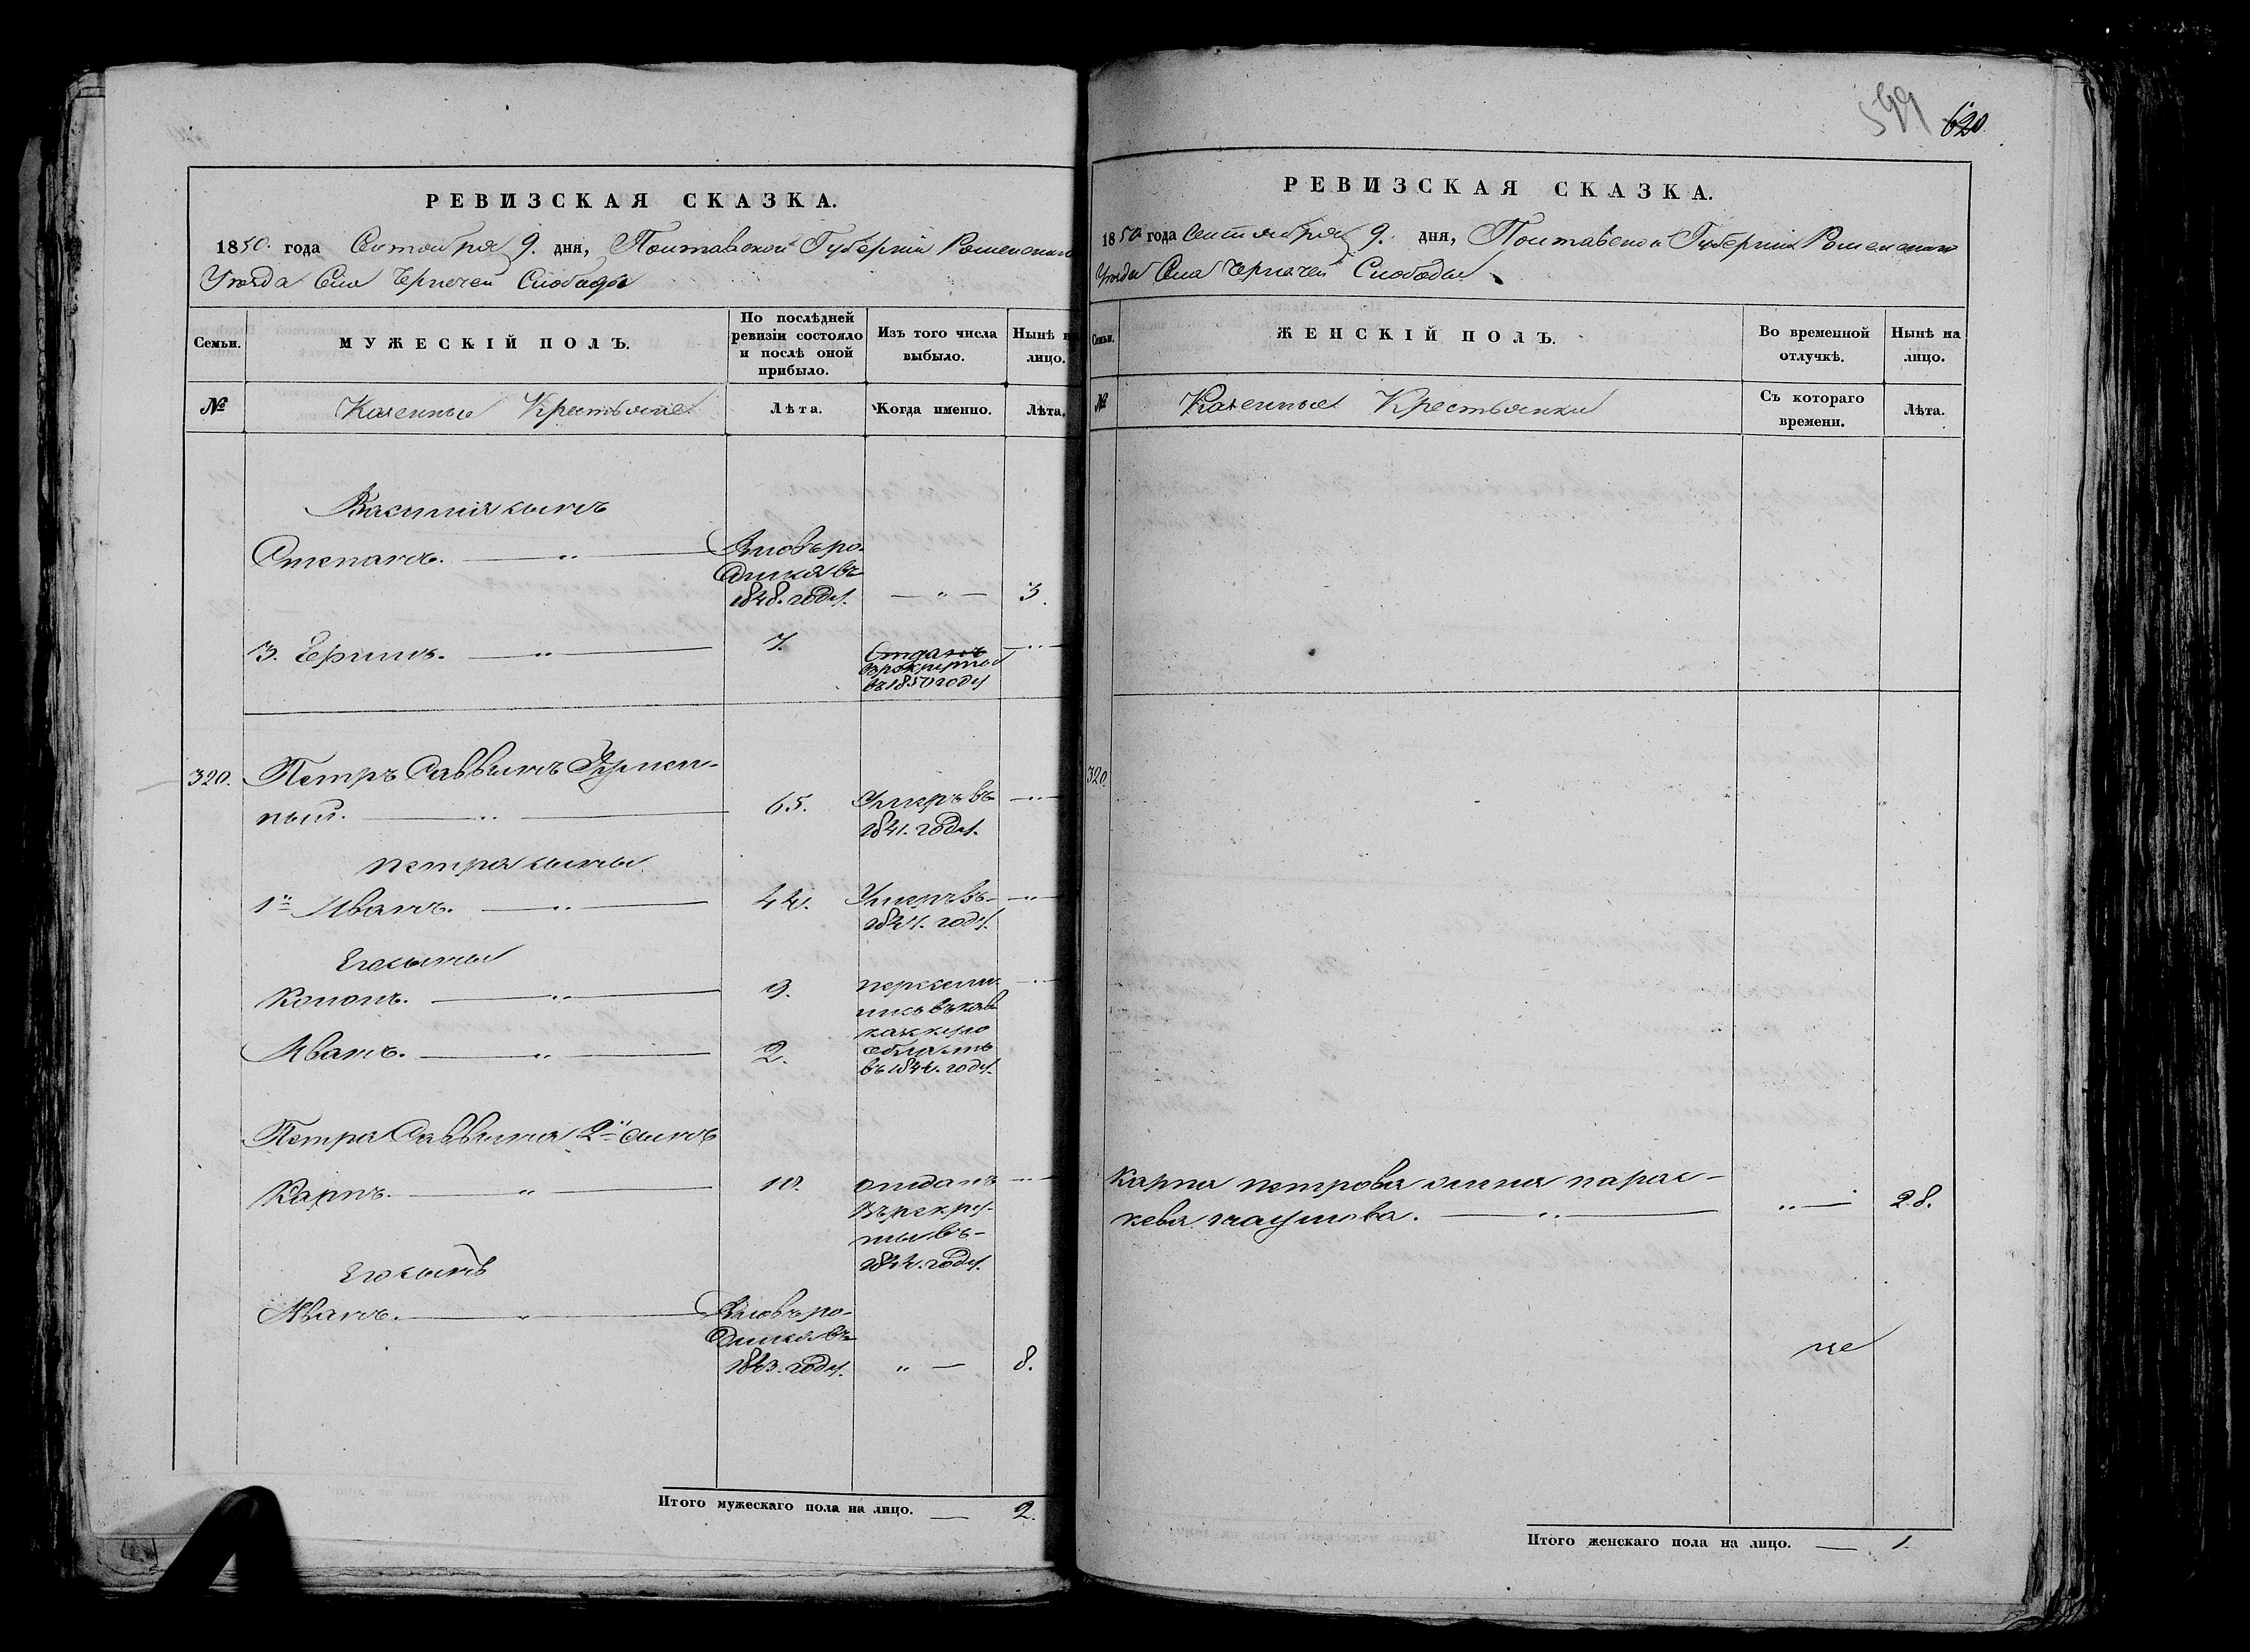 599 620.
РЕВИЗСКАЯ СКАЗКА.
1850. года Сентября 9. дня, Полтавской Губерніи Роменскаго
Уѣзда Села Черпечей Слободы
Семьи.
МУЖЕСКІЙ ПОЛЪ.
По послѣдней ревизіи состояло и послѣ оной прибыло.
Изъ того числа выбыло.
Нынѣ на лицо.
№
Казенные Крестьяне
Лѣта.
Когда именно.
Лѣта.
Василія сынъ
Степанъ. — „ — Вновь ро-
дился въ
1848. году. — „ — 3.
3. — „ — 7. Отданъ — „ —
въ рекруты
въ 1850 году
320. Петръ Саввинъ
ный. — „ — 65. Умеръ въ — „ —
1841. году.
Петра сыны
1й Иванъ. — „ — 44. Умеръ въ — „ —
году.
Его сыны
Кононъ. — „ — 9. пересели- — „ —
лись въ кав
казкую
область
Иванъ. — „ — 2. въ 1844. году.
Петра Саввина 2й сынъ
Карпъ. — „ — 10. отданъ — „ —
въ рекру-
ты въ
1844. году.
Его сынъ
Иванъ. — „ — Вновь ро-
дился въ
1843. году. „ — 8.
Итого мужескаго пола на лицо. — 2.
РЕВИЗСКАЯ СКАЗКА.
1850 года Сентября 9. дня, Полтавской Губерніи Роменскаго
Уѣзда Села Черпечей Слободы
Семьи.
ЖЕНСКІЙ ПОЛЪ.
Во временной отлучкѣ.
Нынѣ на лицо.
№
Казенные Крестьянки
Съ котораго времени.
Лѣта.
320.
Карпа Петрова жена Парас-
кева Наумова. — „ — „ — 28.
Итого женскаго пола на лицо. — 1.